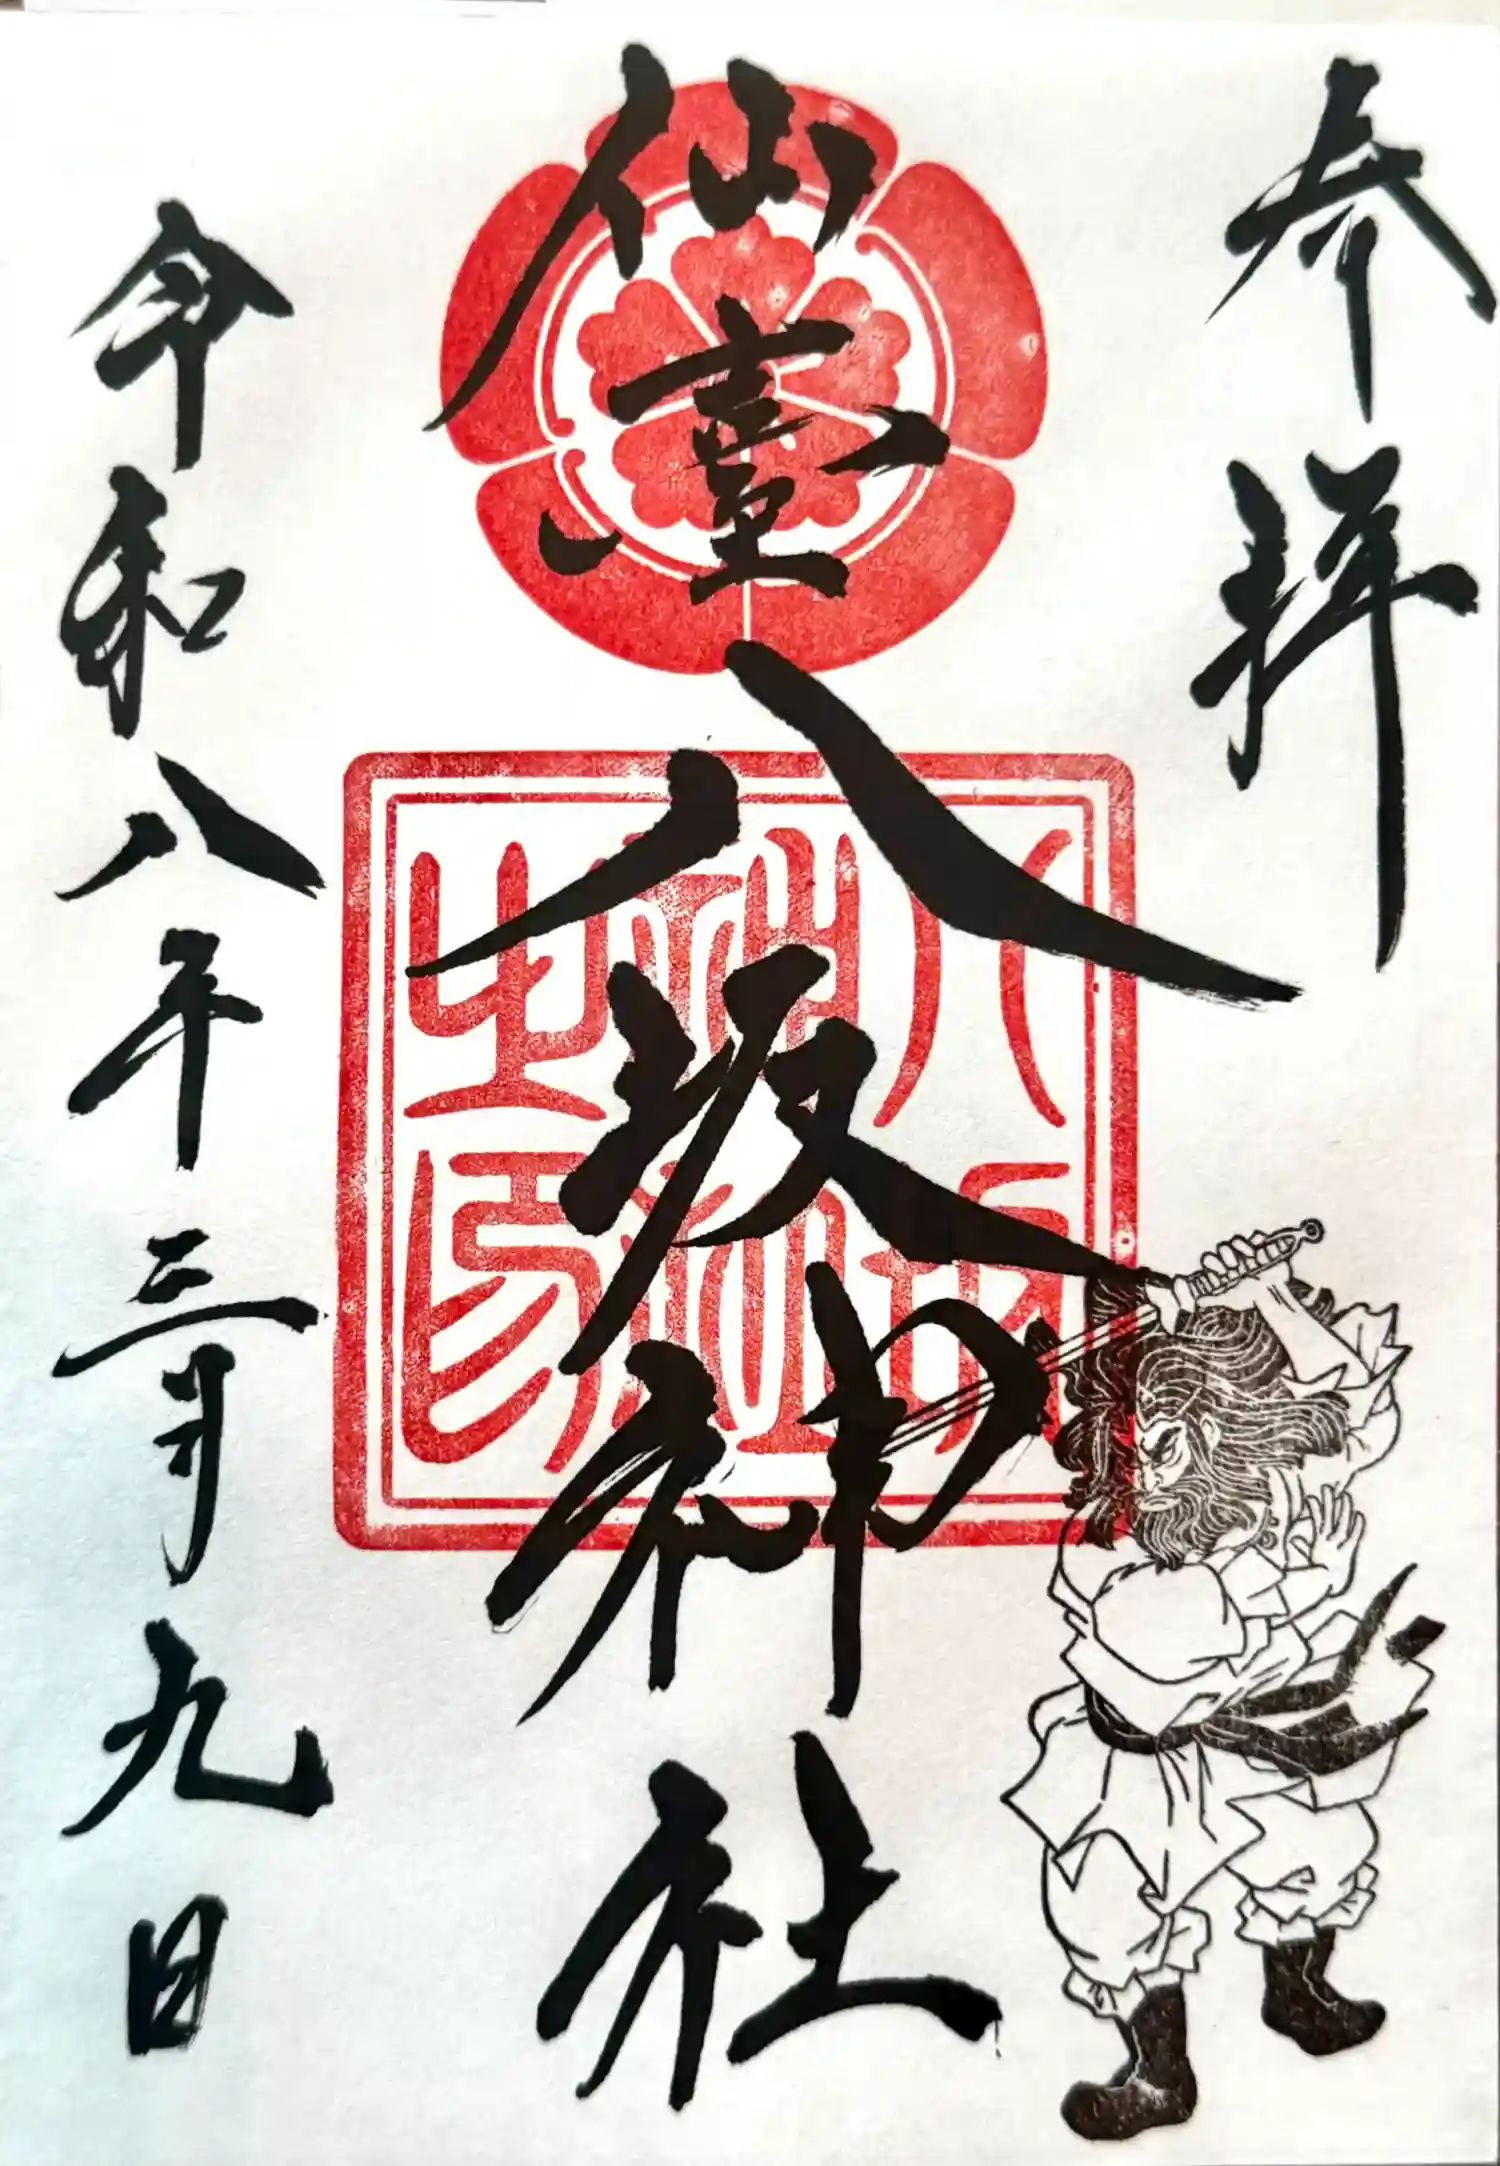 参拝
仙臺八坂神社
八坂
神社
之印
令和八年三月九日